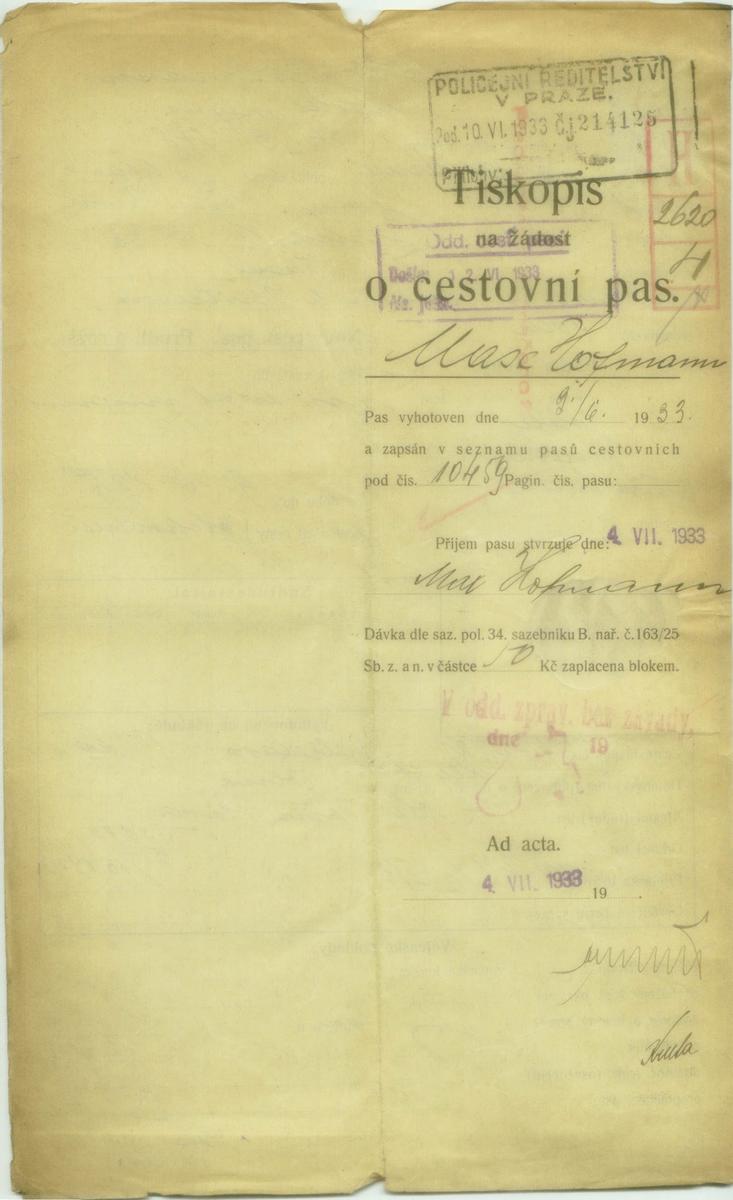 POLICEJNÍ ŘEDITELSTVÍ
V PRAZE.
Pod. 10. VI. 1933 Čj 214125
Přílohy:
Tiskopis
2620
na žádost
4
Odd. cest. pasů
Došlo: 12. VI. 1933
o cestovní pas.
Max Hofmann
Pas vyhotoven dne 1933.
a zapsán v seznamu pasů cestovních
pod čís. 10459 Pagin. čís. pasu:
Příjem pasu stvrzuje dne: 4. VII. 1933
Max Hofmann
Dávka dle saz. pol. 34. sazebníku B. nař. č. 163/25
Sb. z. a n. v částce 10 Kč zaplacena blokem.
V odd. zprav. bez závady,
dne 19
Ad acta.
4. VII. 1933 19